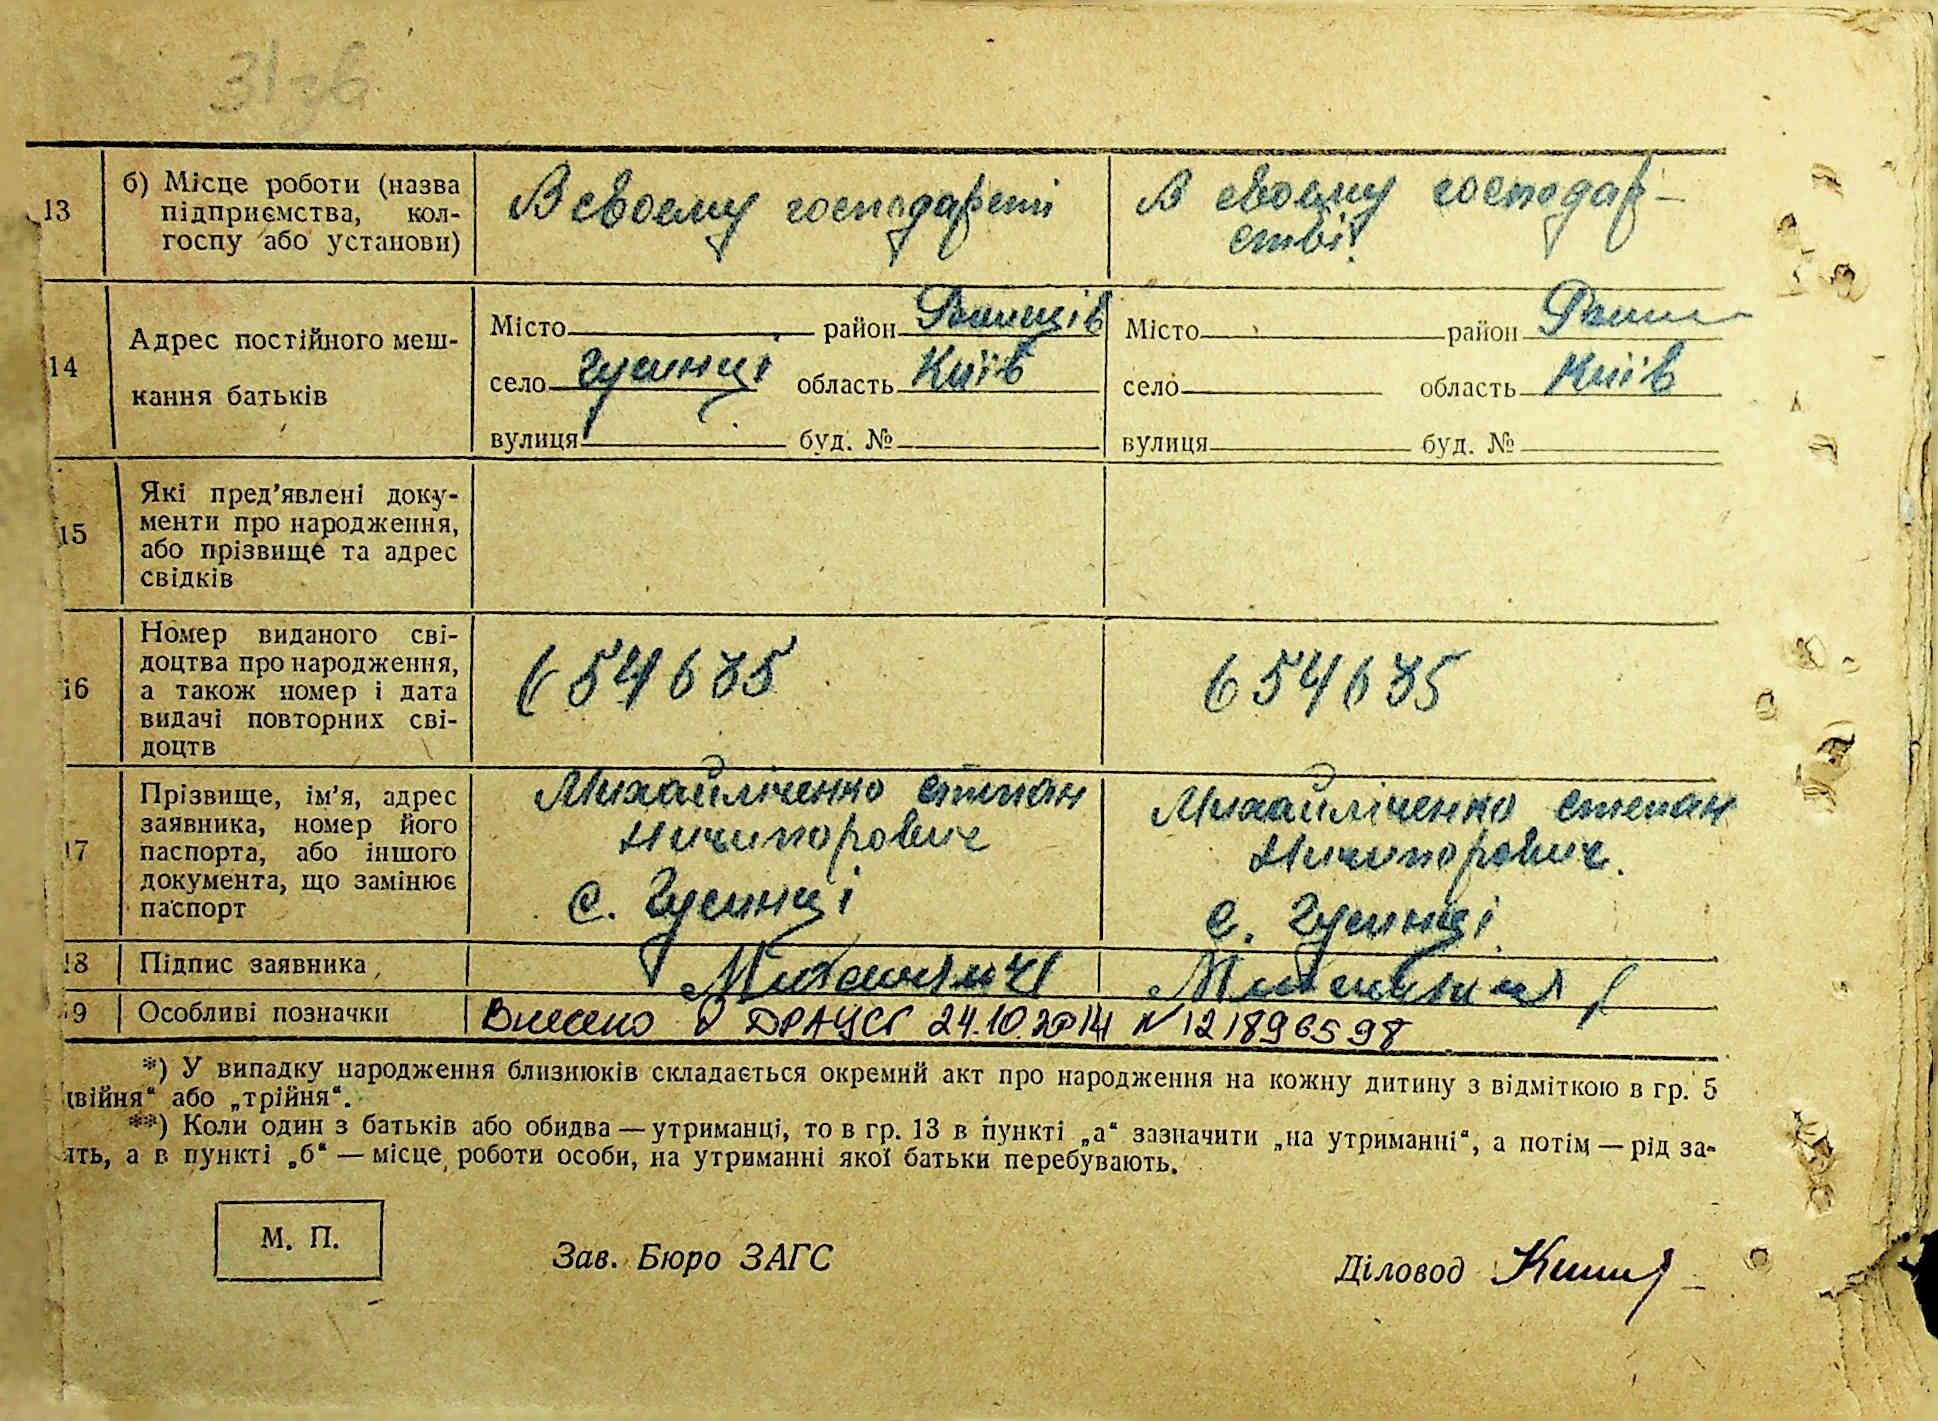 31 зв
13 б) Місце роботи (назва підприємства, кол-госпу або установи)
В своему господарстві
В своему господар-
стві.
14 Адрес постійного меш-
кання батьків
Місто район
село Гусинці область Київ
вулиця буд. №
Місто район
село область Київ
вулиця буд. №
15 Які пред'явлені доку-
менти про народження,
або прізвище та адрес
свідків
16 Номер виданого сві-
доцтва про народження,
а також номер і дата
видачі повторних сві-
доцтв
654635
654635
17 Прізвище, ім'я, адрес
заявника, номер його
паспорта, або іншого
документа, що замінює
паспорт
Михайліченко Степан
Ничипорович
с. Гусинці
Михайліченко Степан
Ничипорович.
с. Гусинці
18 Підпис заявника
19 Особливі позначки Внесено в ДРАЦСГ 24.10.2014 № 121896598
*) У випадку народження близнюків складається окремий акт про народження на кожну дитину з відміткою в гр. 5
двійня“ або „трійня“.
**) Коли один з батьків або обидва — утриманці, то в гр. 13 в пункті „а“ зазначити „на утриманні“, а потім — рід за-
ять, а в пункті „б“ — місце роботи особи, на утриманні якої батьки перебувають.
М. П.
Зав. Бюро ЗАГС
Діловод